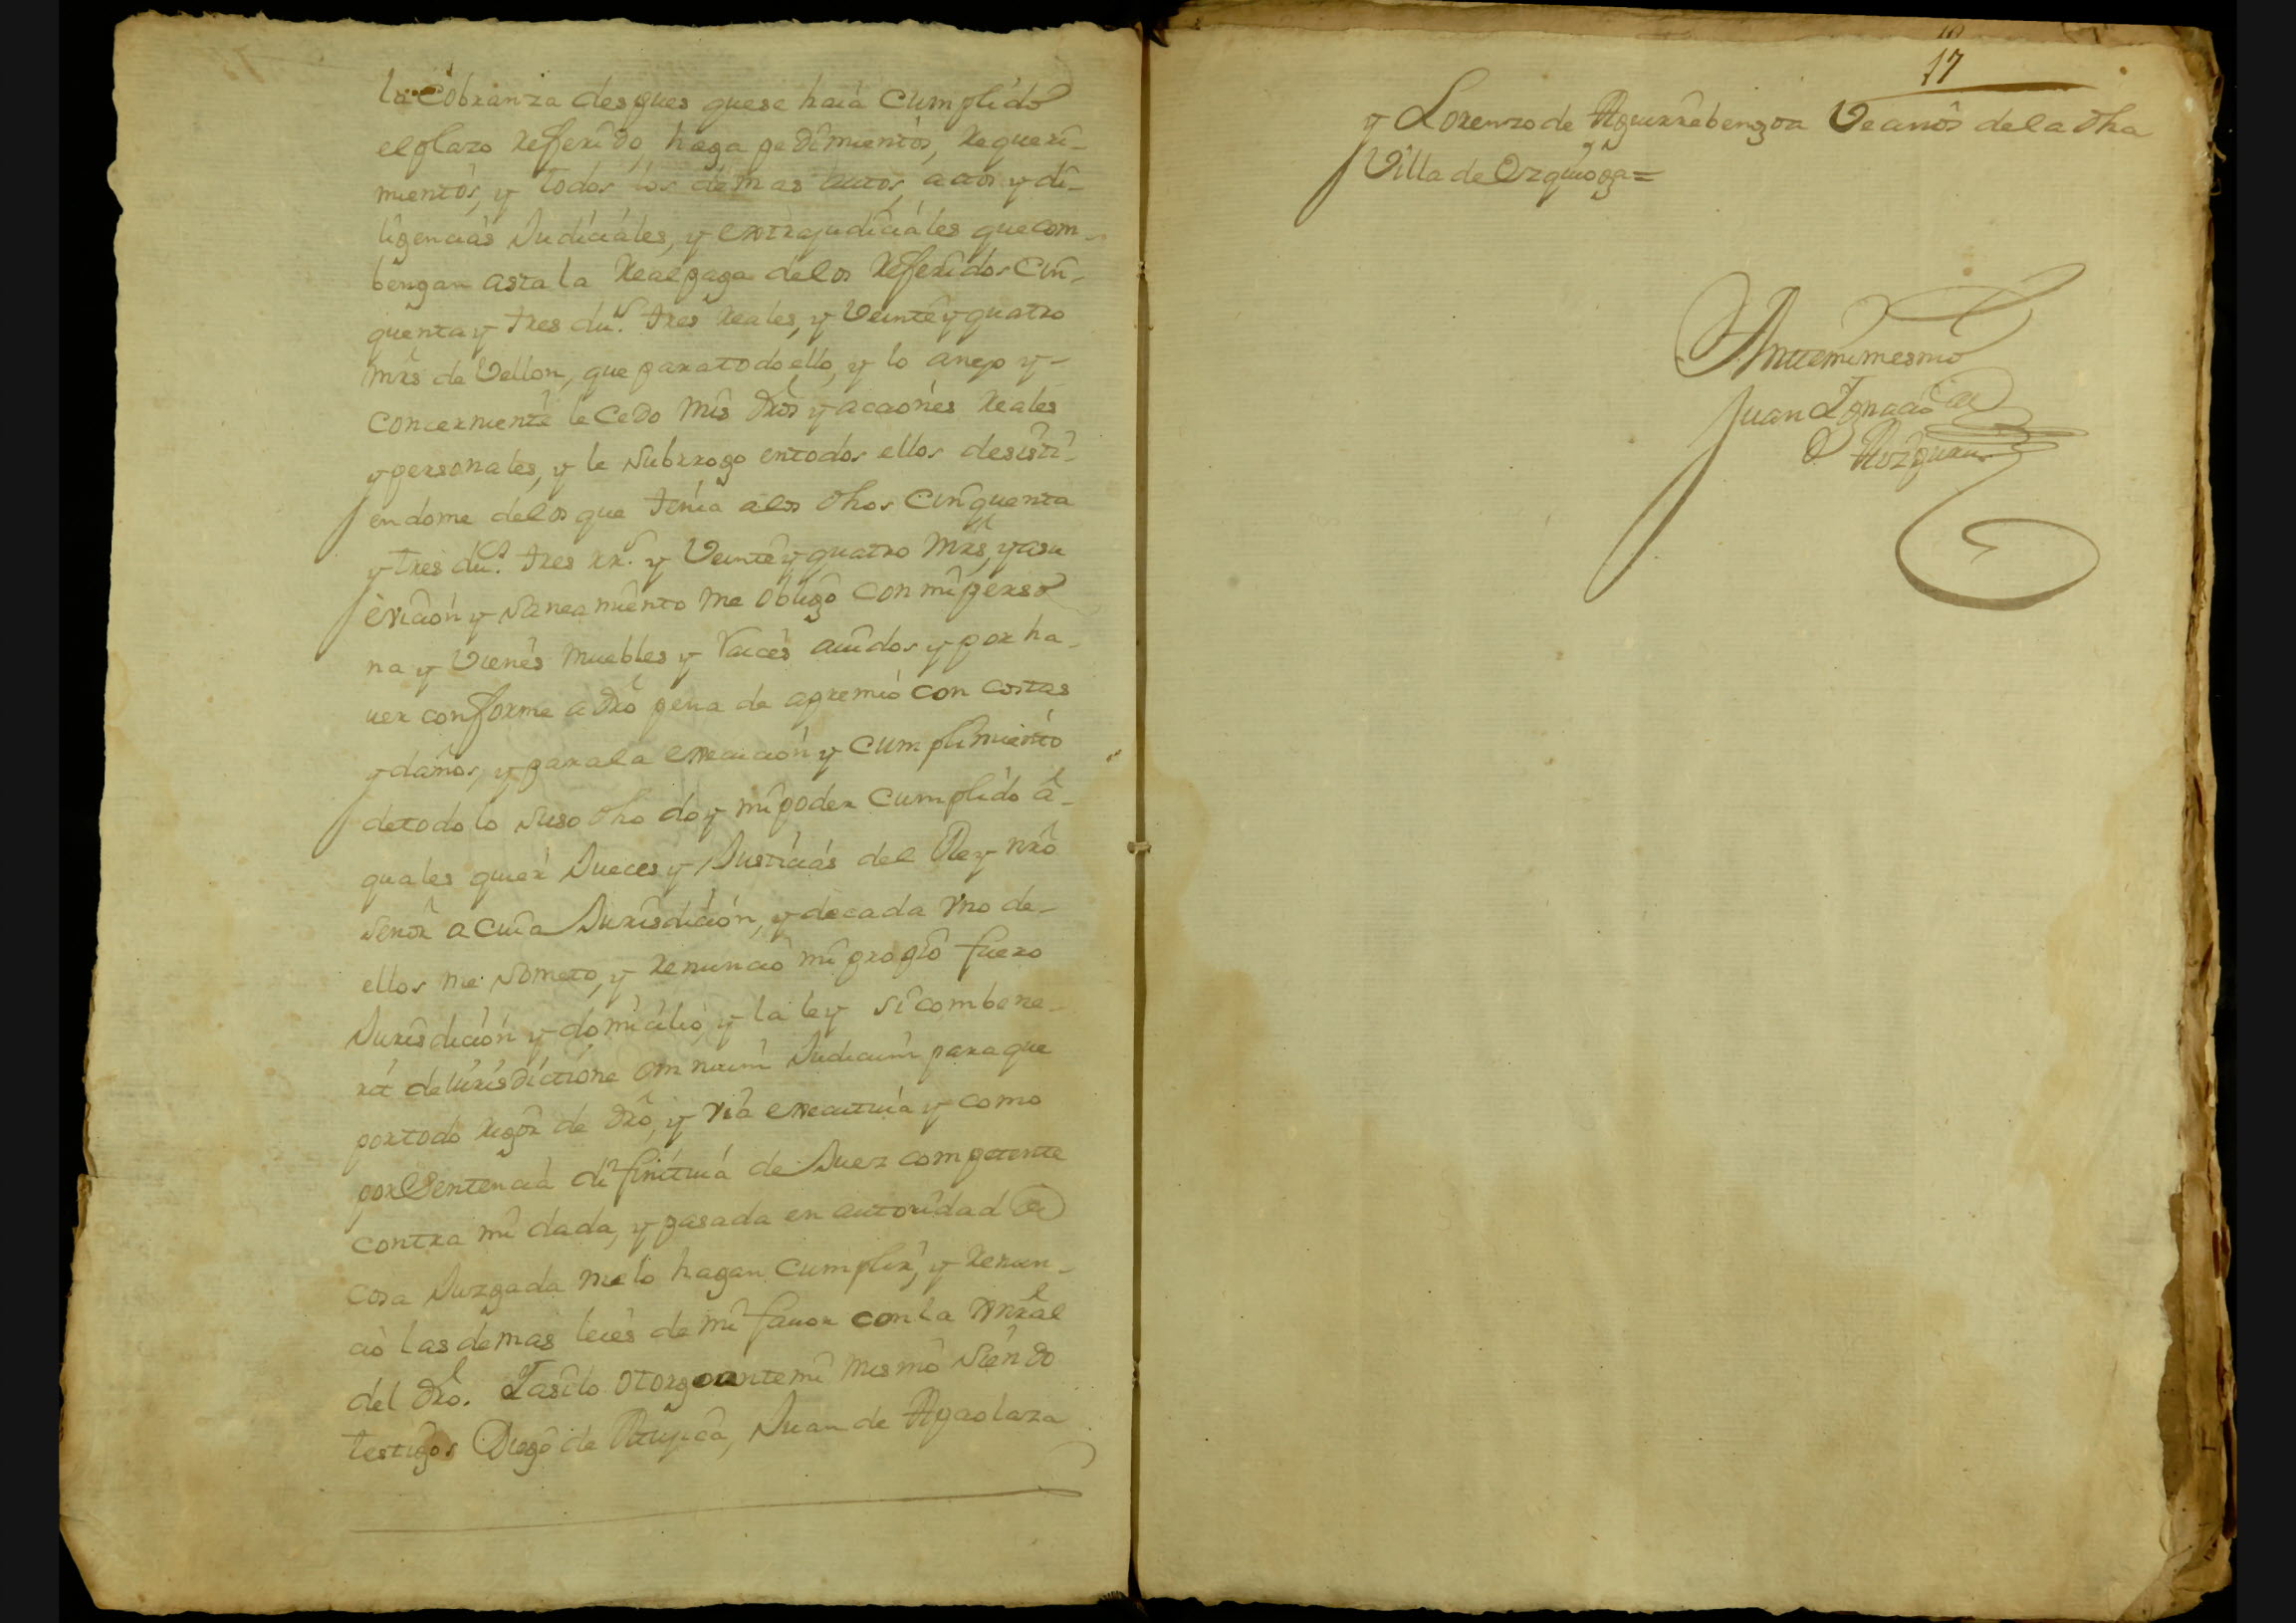 la Cobranza despues que se haia Cumplido
el plazo Referido, haga pedimientos, Requeri-
mientos, y todos los demas autos, actos y di-
ligencias Judiciales, y extrajudiciales que com-
bengan asta la Real paga de los Referidos Cin-
quenta y tres du.s tres Reales, y Veinte y quatro
mrs de Vellon, que para todo ello, y lo anejo y-
concerniente le Cedo mis dros y acciones Reales
y personales, y le Subrrogo en todos ellos desisti-
endome de los que tenia a los dhos Cinquenta
y tres du.s tres rr.s y Veinte y quatro mrs, y a su
evicion y Saneamiento me obligo con mi perso
na y Vienes muebles y Raices auidos y por ha-
uer conforme a dro pena de apremio con costas
y daños, y para la execucion y cumplimiento
de todo lo Suso dho doy mi poder cumplido a-
quales quier Jueces y Justicias del Rey nro
Señor a cuia Jurisdicion, y de cada vno de-
ellos me Someto, y Renuncio mi propio fuero
Jurisdicion y domicilio, y la ley si combene-
rit de iurisdictione omnium Judicum para que
por todo Rigor de dro, y via executiua y como
por Sentencia difinitiua de Juez competente
contra mi dada, y pasada en autoridad de
cosa Juzgada me lo hagan Cumplir, y Renun-
cio las demas leies de mi fauor con la Genral
del dro. Y asi lo otorgo ante mi mismo Siendo
testigos Diego de Mujica, Juan de Apaolaza
17
y Lorenzo de Aguirrebengoa Vecinos de la dha
Villa de Ezquioga=
Ante mi mesmo
Juan Ignacio de
Aozguran